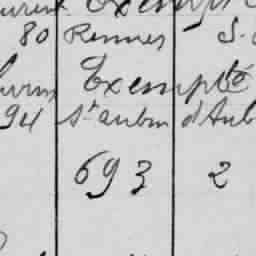 Exempt
80 Rennes S.
Exempté
94 St aubin d'Aub
693 2